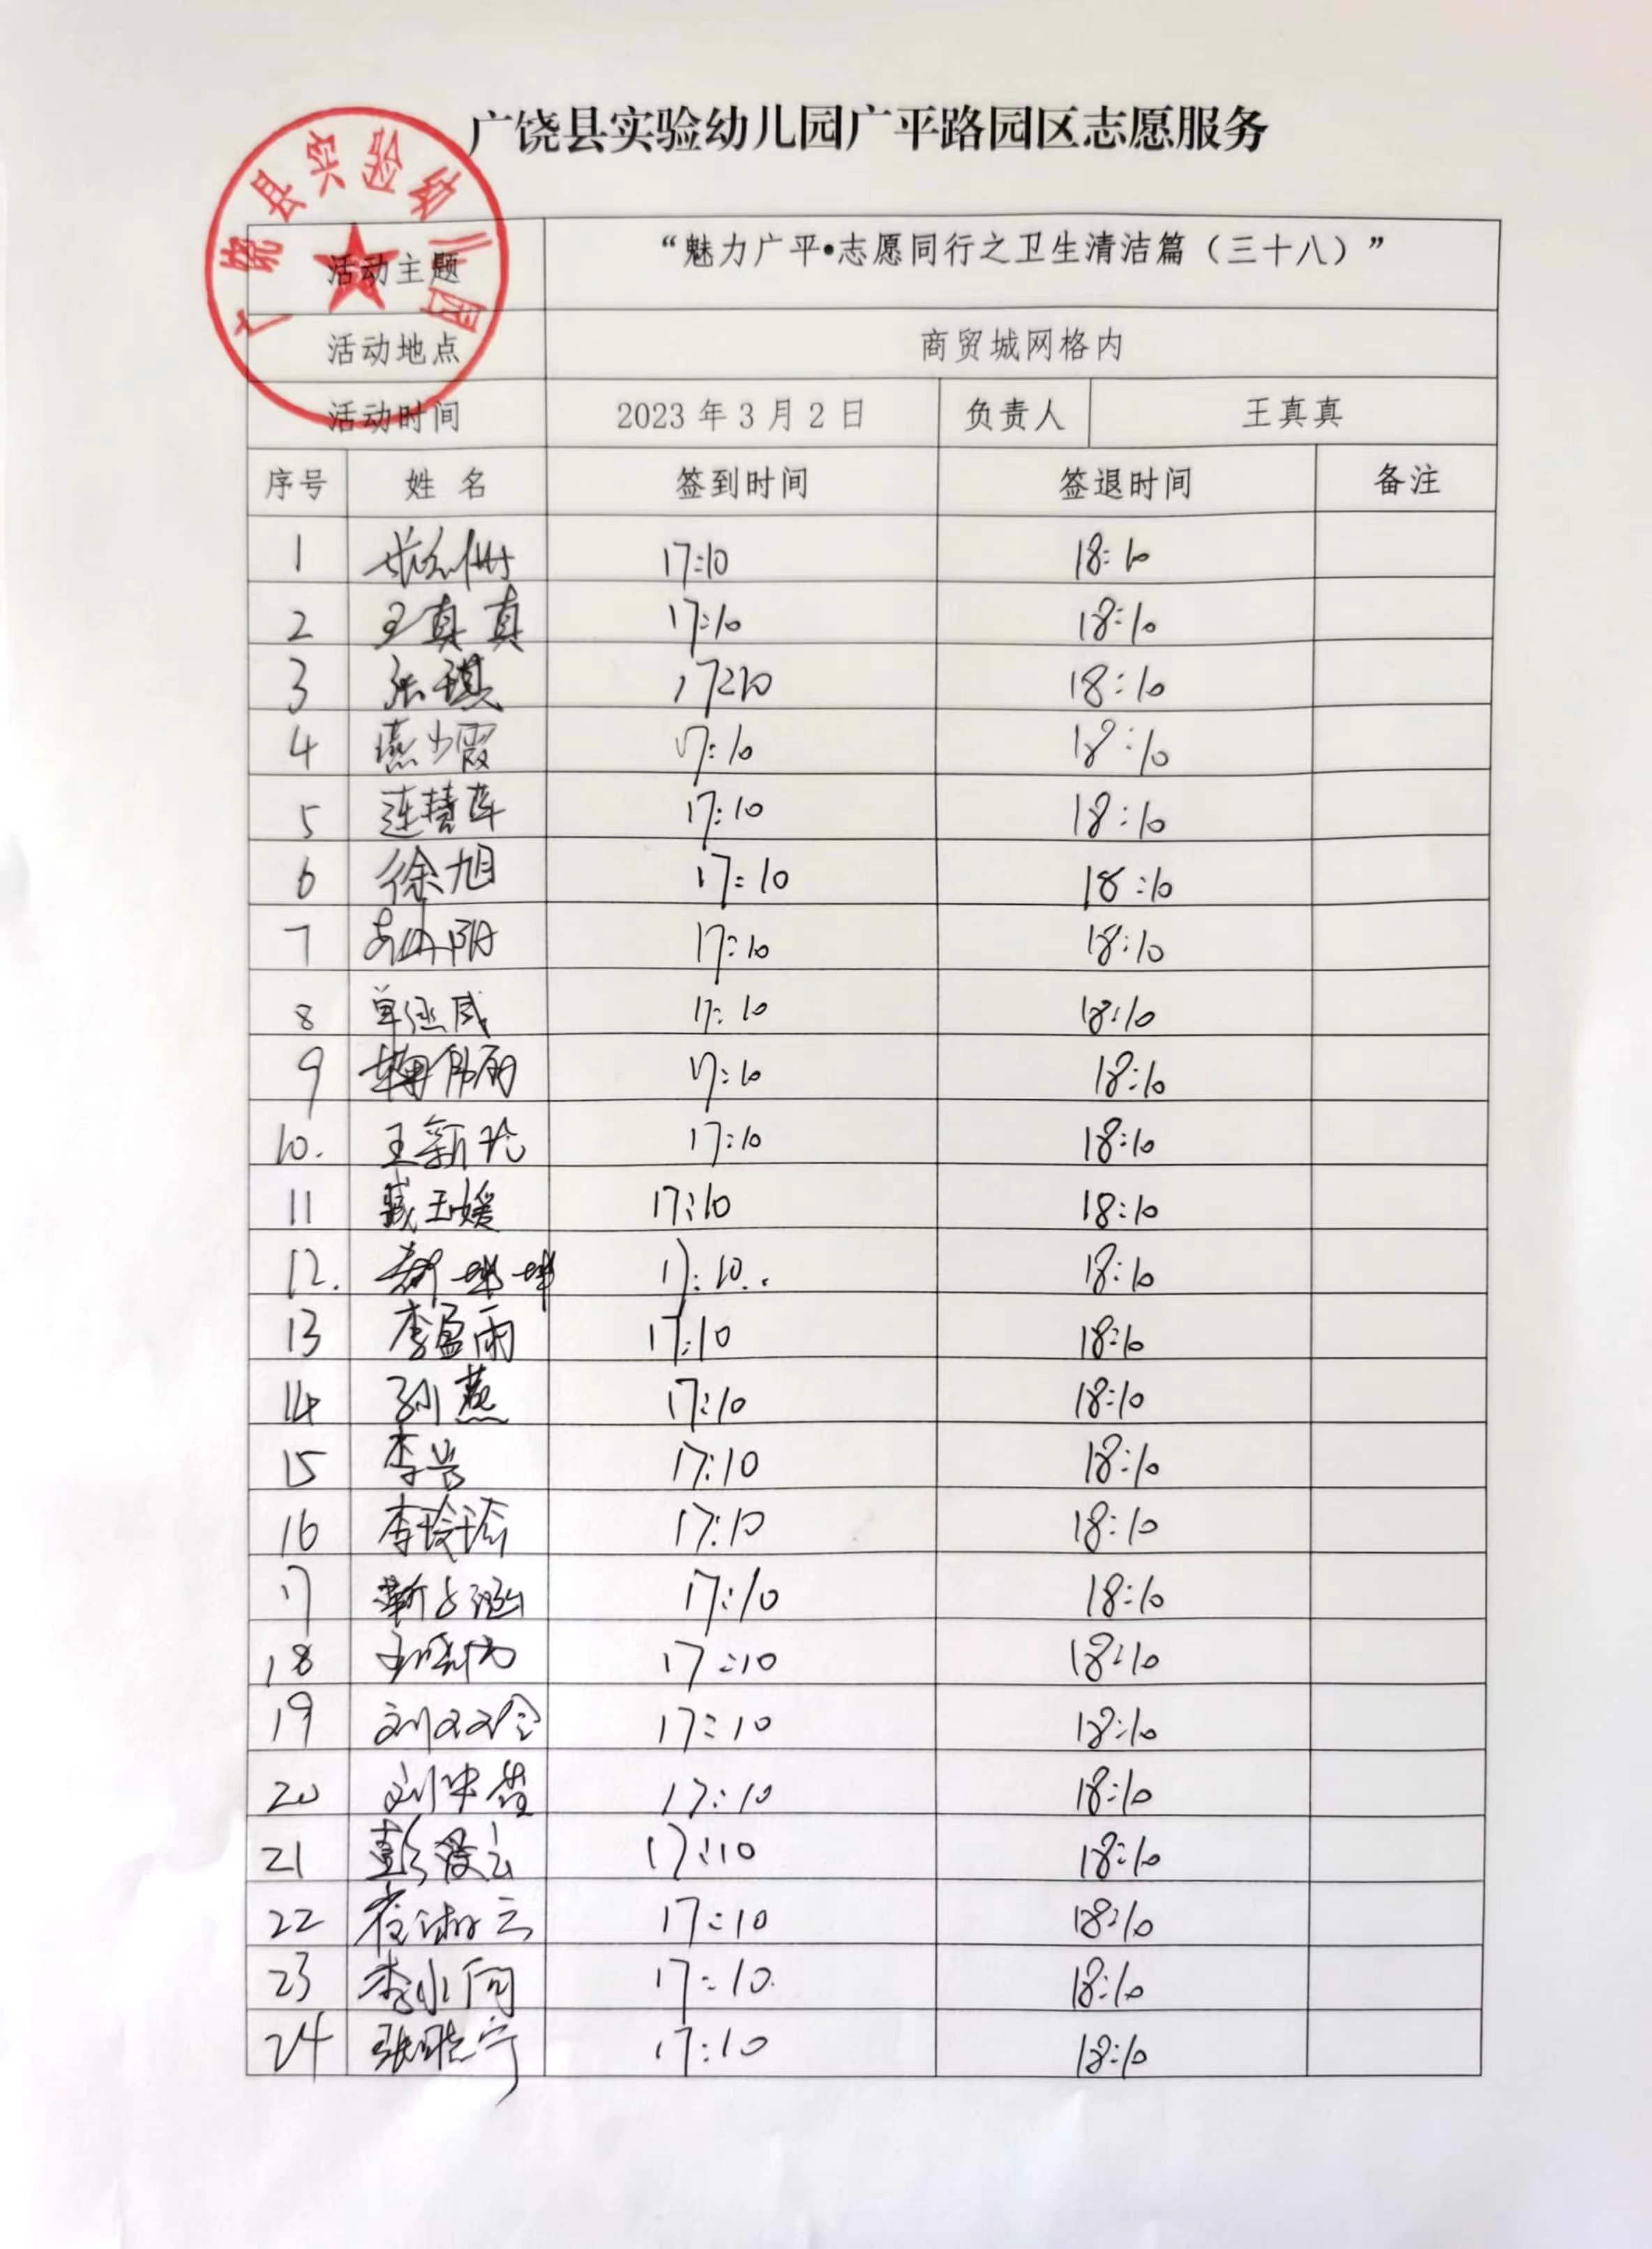 广饶县实验幼儿园广平路园区志愿服务
广饶县实验幼儿园
活动主题 “魅力广平•志愿同行之卫生清洁篇（三十八）”
活动地点 商贸城网格内
活动时间 2023年3月2日 负责人 王真真
序号 姓名 签到时间 签退时间 备注
1 17:10 18:10
2 王真真 17:10 18:10
3 张琪 17:10 18:10
4 燕少霞 17:10 18:10
5 连慧萍 17:10 18:10
6 徐旭 17:10 18:10
7 17:10 18:10
8 17:10 18:10
9 17:10 18:10
10. 17:10 18:10
11 臧玉媛 17:10 18:10
12. 17:10 18:10
13 李盈雨 17:10 18:10
14 孙燕 17:10 18:10
15 17:10 18:10
16 17:10 18:10
17 靳子涵 17:10 18:10
18 17:10 18:10
19 17:10 18:10
20 17:10 18:10
21 17:10 18:10
22 崔淑云 17:10 18:10
23 17:10 18:10
24 张晓宁 17:10 18:10